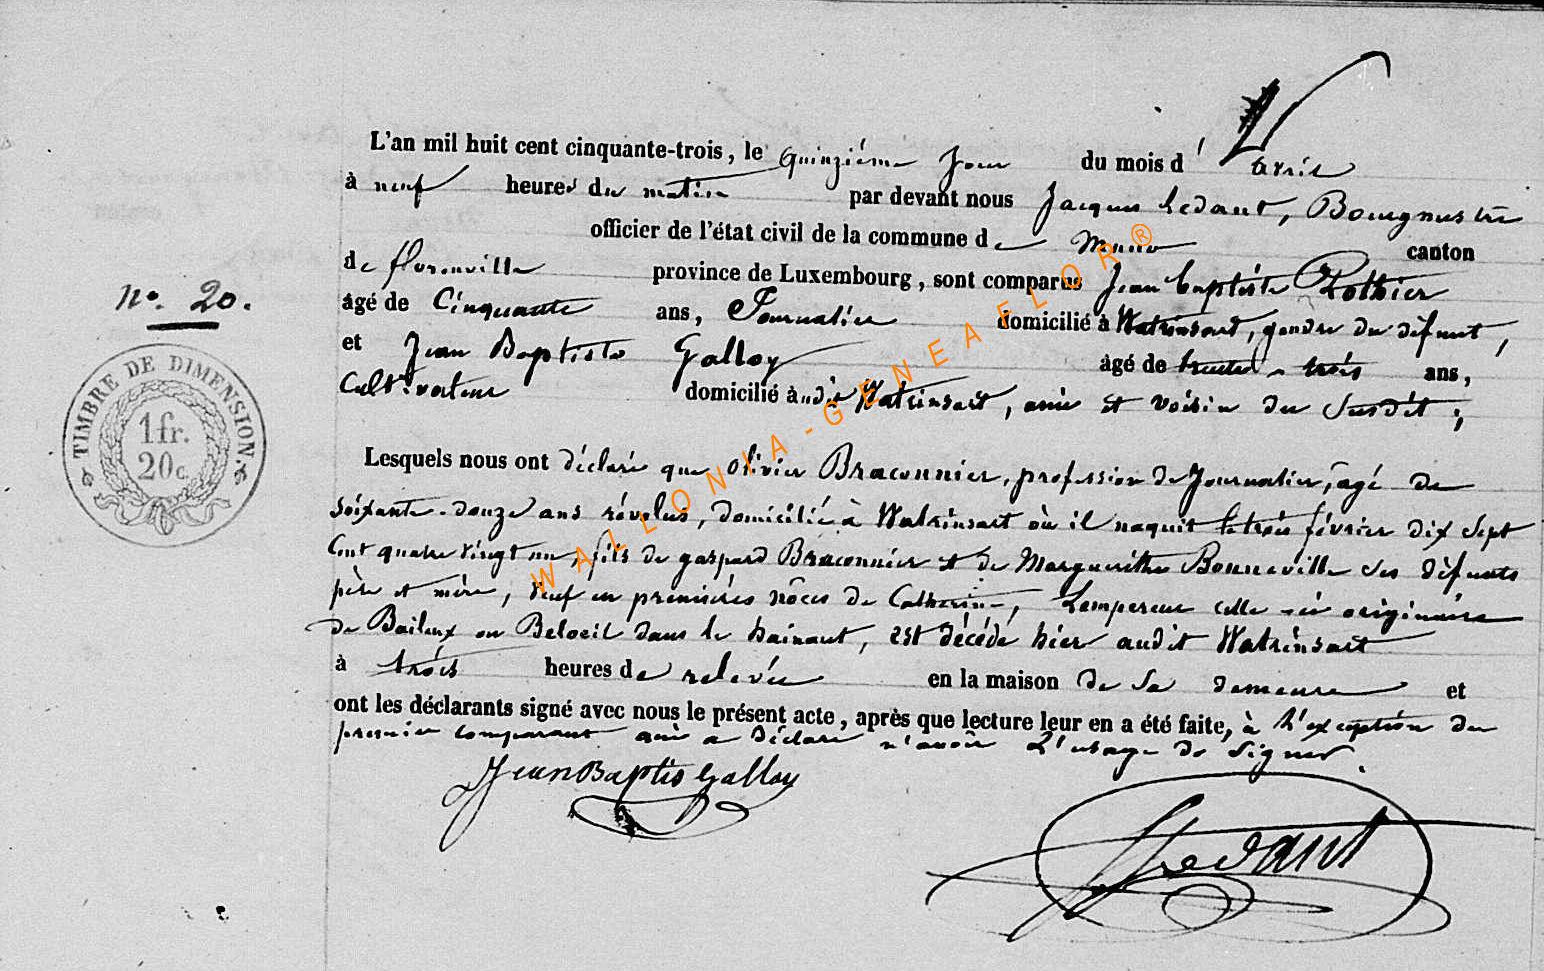 L'an mil huit cent cinquante-trois, le quinzième jour du mois d' avril
à neuf heures du matin par devant nous Jacques Ledant, Bourgmestre
officier de l'état civil de la commune de Muno canton
de florenville province de Luxembourg, sont comparus Jean baptiste Pothier
âgé de Cinquante ans, Journalier domicilié à Watrinsart, gendre du défunt,
N°. 20.
et Jean Baptiste Galloy âgé de trente-trois ans,
TIMBRE DE DIMENSION.
1 fr.
20 c.
Cultivateur domicilié audit Watrinsart, ami et voisin du susdit;
Lesquels nous ont déclaré que Olivier Braconnier, profession de Journalier, âgé de
soixante-douze ans révolus, domicilié à Watrinsart où il naquit le trois février dix sept
Cent quatre vingt un, fils de gaspard Braconnier et de Marguerithe Bonneville ses défunts
père et mère, veuf en premières nôces de Catherine, Lempereur celle-ci originaire
de Baileux ou Beloeil dans le hainaut, est décédé hier audit Watrinsart
à trois heures de relevée en la maison de sa demeure et
ont les déclarants signé avec nous le présent acte, après que lecture leur en a été faite, à l'exception du
premier comparant qui a déclaré n'avoir l'usage de signer.
Jean Baptis Galloy
JLedant
WALLONIA-GENEAFLOR®